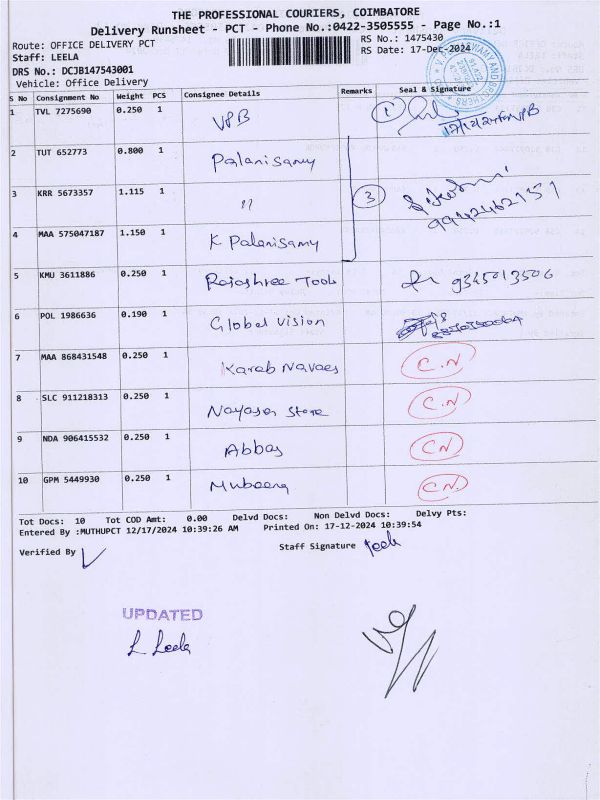 THE PROFESSIONAL COURIERS, COIMBATORE
Delivery Runsheet - PCT - Phone No.:0422-3505555 - Page No.:1
Route: OFFICE DELIVERY PCT
RS No.: 1475430
Staff: LEELA
RS Date: 17-Dec-2024
DRS No.: DCJB147543001
Vehicle: Office Delivery
S No Consignment No Weight PCS Consignee Details Remarks Seal & Signature
1 TVL 7275690 0.250 1 VPB 1
2 TUT 652773 0.800 1 Palanisamy
3 KRR 5673357 1.115 1 " 3 9942462151
4 MAA 575047187 1.150 1 K Palanisamy
5 KMU 3611886 0.250 1 Rajashree Tools 9345013506
6 POL 1986636 0.190 1 Global Vision
7 MAA 868431548 0.250 1 Karab Navaes C.N
8 SLC 911218313 0.250 1 Nayasa Store C.N
9 NDA 906415532 0.250 1 Abbas CN
10 GPM 5449930 0.250 1 Mubeena CN
Tot Docs: 10 Tot COD Amt: 0.00 Delvd Docs: Non Delvd Docs: Delvy Pts:
Entered By :MUTHUPCT 12/17/2024 10:39:26 AM Printed On: 17-12-2024 10:39:54
Verified By
Staff Signature Leela
UPDATED
L Leela